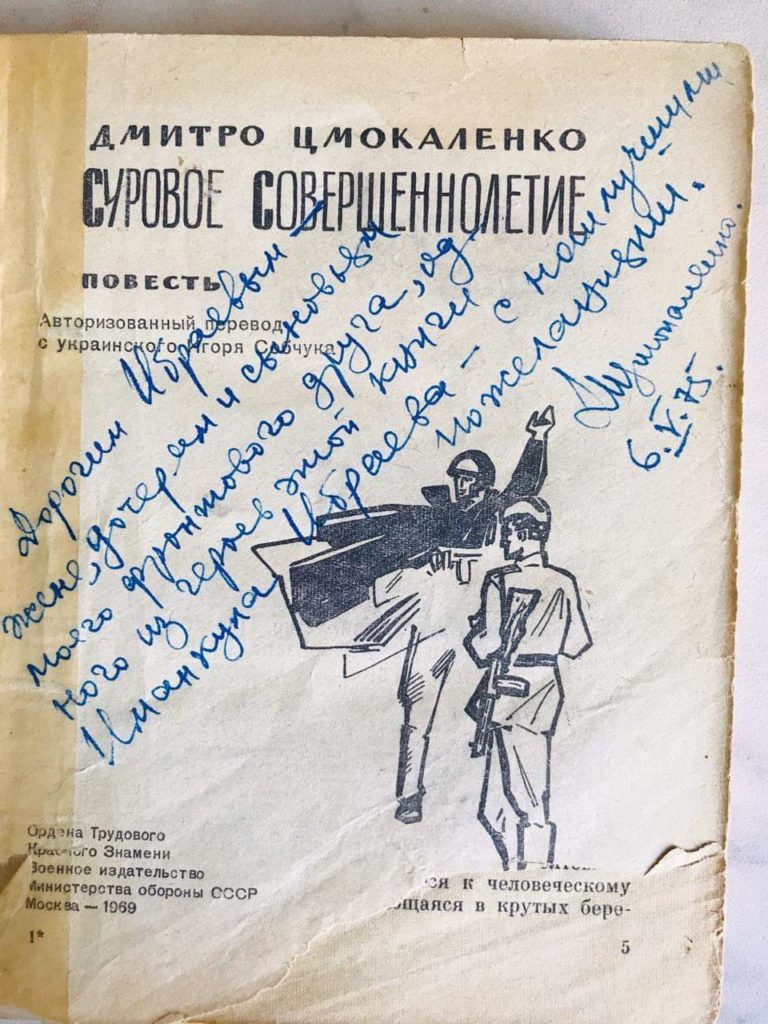 ДМИТРО ЦМОКАЛЕНКО
СУРОВОЕ СОВЕРШЕННОЛЕТИЕ
ПОВЕСТЬ
Авторизованный перевод
с украинского Игоря Собчука
Дорогим Ибраевым –
жене, дочерям и сыновьям
моего фронтового друга, од-
ного из героев этой книги
Иманкула Ибраева – с наилучшими
пожеланиями.
ДЦмокаленко.
6.V.75.
Ордена Трудового
Красного Знамени
Военное издательство
Министерства обороны СССР
Москва — 1969
1*
ся к человеческому
ющаяся в крутых бере-
5